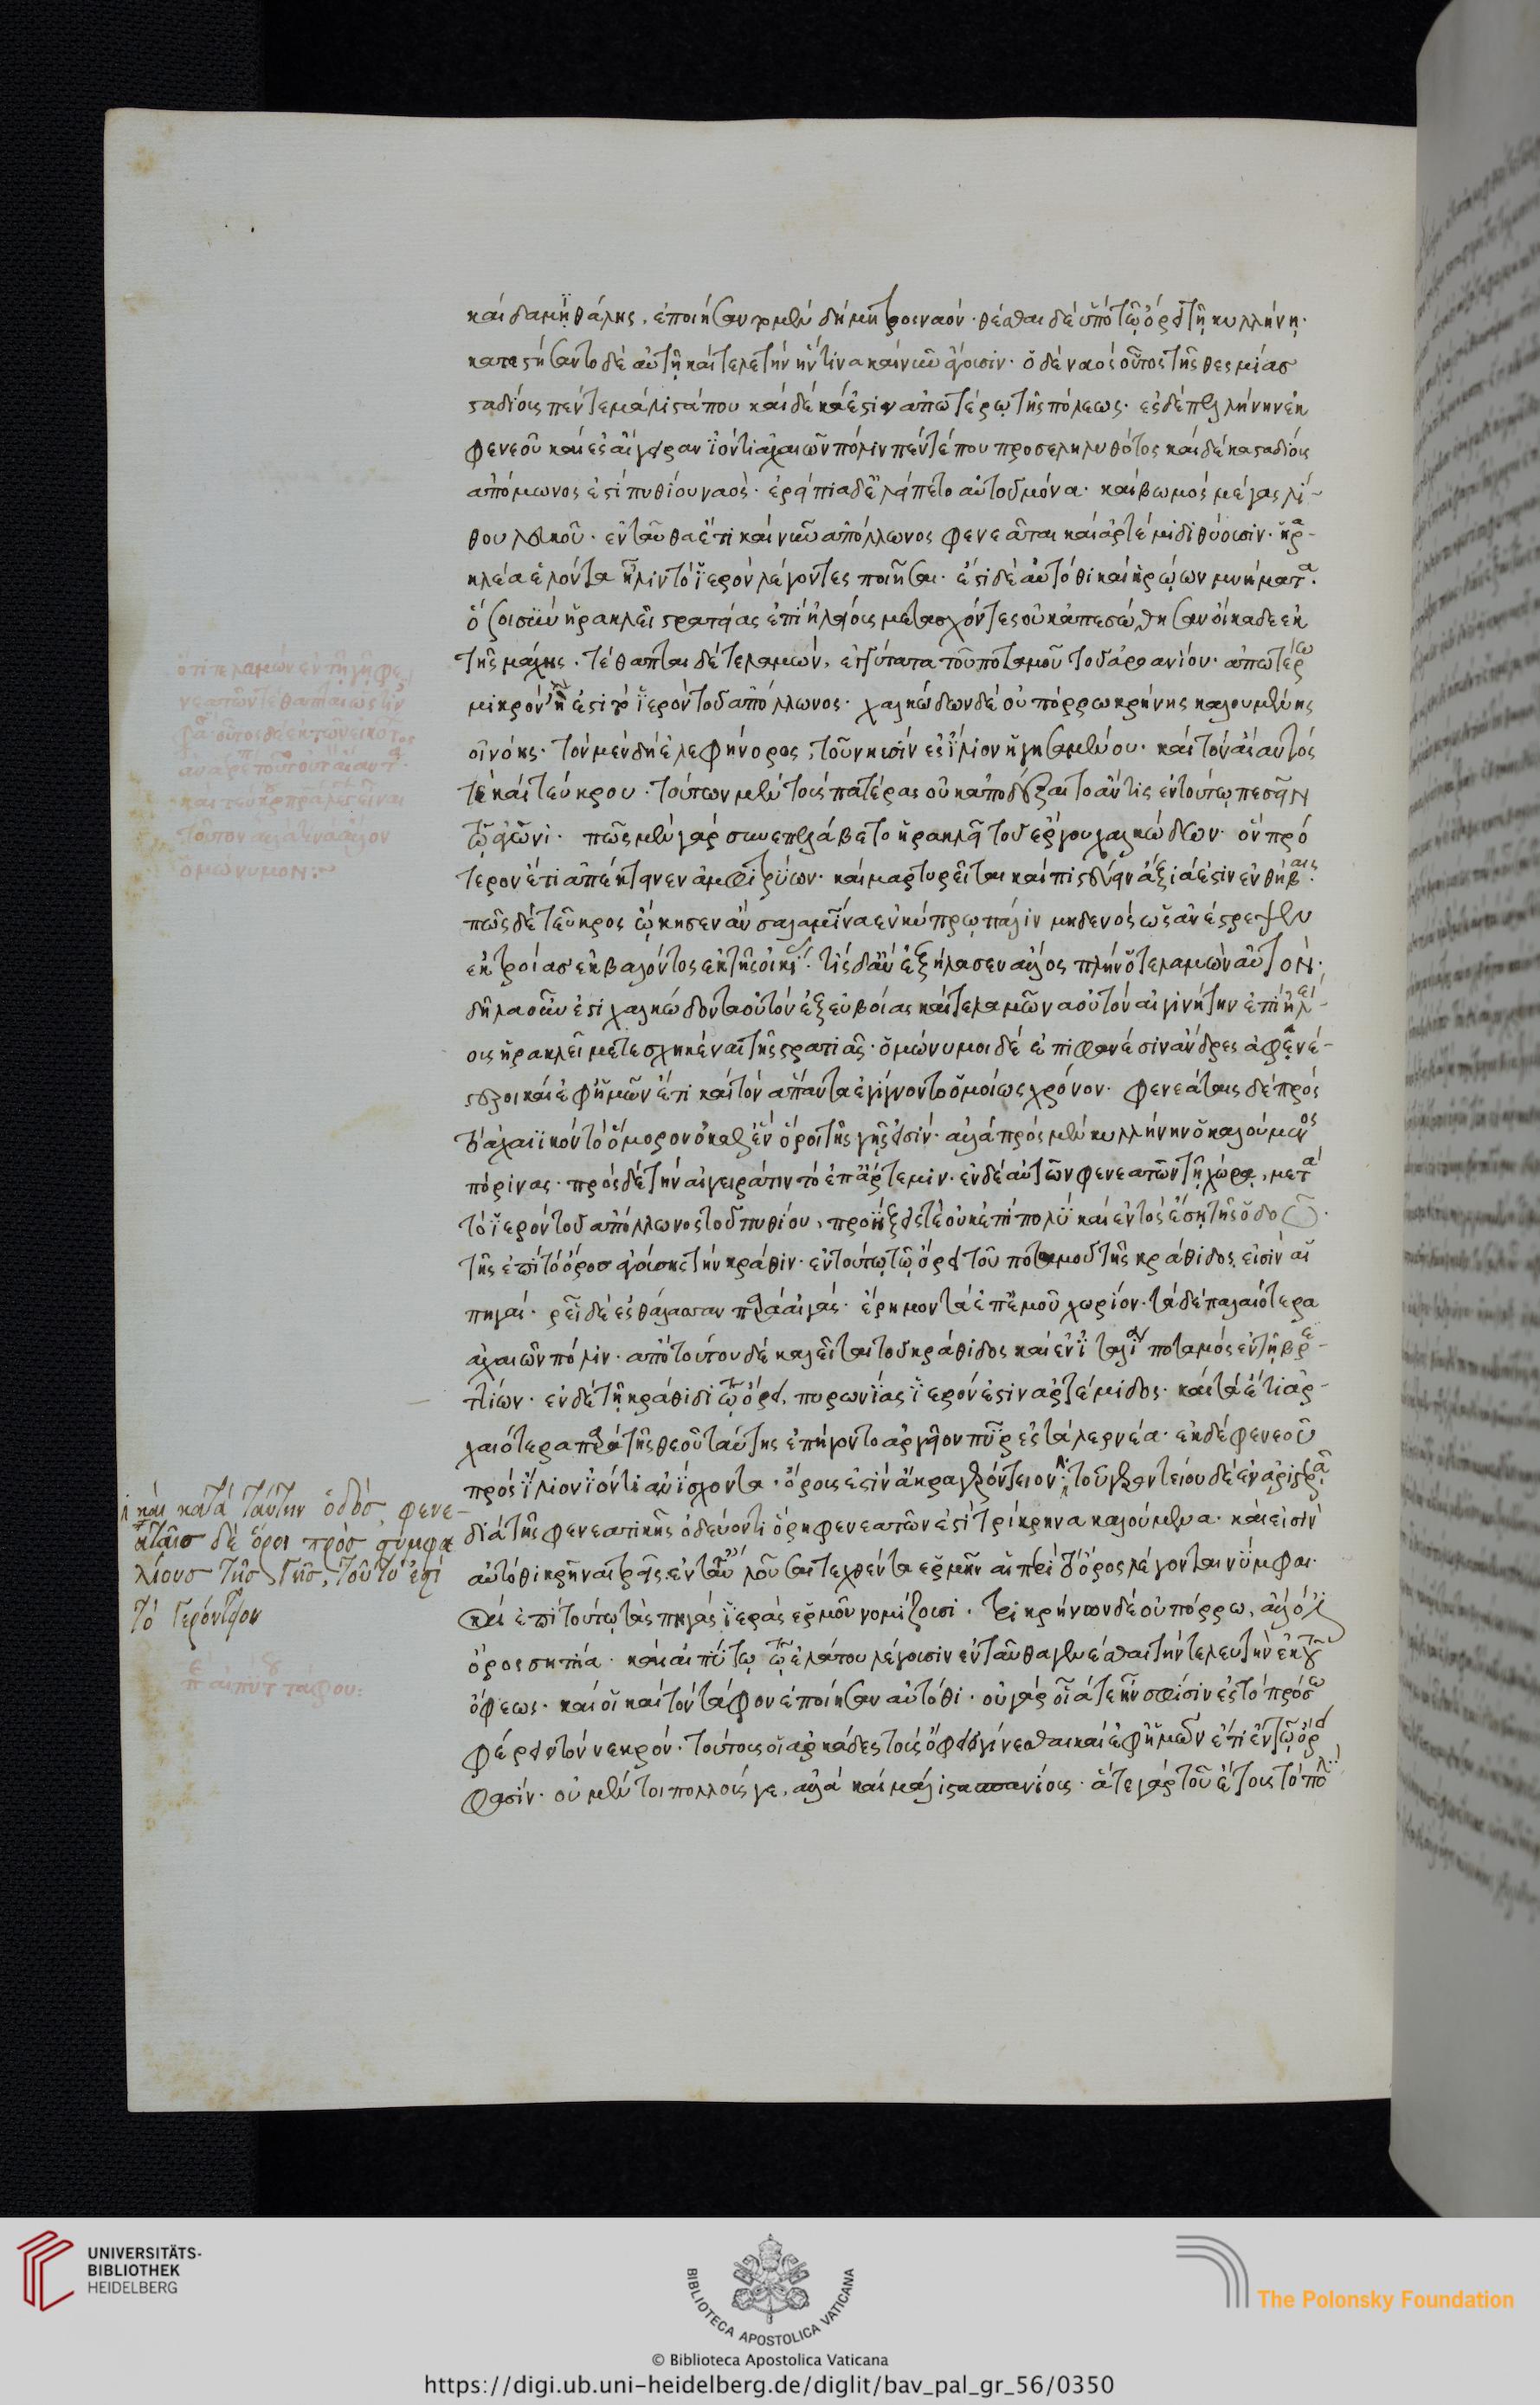 καὶ δαμιθάλης. ἐποιήσαντο μὲν δήμητροι ναόν. θεᾶσθαι δὲ ὑπὸ τῶ ὄρει τῆ κυλλήνη.
κατεστήσαντο δὲ αὐτῆ καὶ τελετὴν ἥντινα καὶ νῦν ἄγουσιν. ὁ δὲ ναὸς οὗτος τῆς θεσμίας
σταδίοις πέντε μάλιστά που καὶ δέκά ἐστιν ἀπωτέρω τῆς πόλεως. ἐς δὲ πελλήνην ἐκ
φενεοῦ καὶ ἐς αἴγειραν ἰόντι ἀχαιῶν πόλιν πέντέ που προσεληλυθότος καὶ δέκα σταδίοις
ἀπόλλωνος ἐστὶ πυθίου ναός. ἐρείπια δὲ ἐλείπετο αὐτοῦ μόνα. καὶ βωμὸς μέγας λί-
θου λευκοῦ. ἐνταῦθα ἔτι καὶ νῦν ἀπόλλωνος φενεᾶται καὶ ἀρτέμιδι θύουσιν. ἡρα-
κλέα ἑλόντα ἦλιν τὸ ἱερὸν λέγοντες ποιῆσαι. ἐστὶ δὲ αὐτόθι καὶ ἡρώων μνήματα.
ὅσοι σὺν ἡρακλεῖ στρατείας ἐπὶ ἠλείοις μετασχόντες οὐκ ἀπεσώθησαν οἴκαδε ἐκ
τῆς μάχης. τέθαπται δὲ τελαμών, ἐγγύτατα τοῦ ποταμοῦ τοῦ ἀροανίου. ἀπωτέρω
μικρὸν ἢ ἐστὶ τὸ ἱερὸν τοῦ ἀπόλλωνος. χαλκώδων δὲ οὐ πόρρω κρήνης καλουμένης
οἰνόης. τὸν μὲν δὴ ἐλεφήνορος, τοῦ νησὶν ἐς ἴλιον ἡγησαμένου. καὶ τὸν αἴαντός
τε καὶ τεύκρου. τούτων μὲν τοὺς πατέρας οὐκ ἀποδέξαιτο ἄν τις ἐν τούτω πεσεῖν
τῶ ἀγῶνι. πῶς μὲν γὰρ συνεπελάβετο ἡρακλεῖ τοῦ ἔργου χαλκώδων. ὃν πρό
τερον ἔτι ἀπέκτεινεν ἀμφιτρύων. καὶ μαρτυρεῖται καὶ πιστεύειν ἄξιά ἐστιν ἐν θήβαις.
πῶς δὲ τεῦκρος ᾤκησεν ἂν σαλαμῖνα ἐν κύπρω πάλιν μηδενὸς ὡς ἀνέστρεψεν
ἐκ τροίας ἐκβαλόντος ἐκ τῆς οἰκείας. τίς δ᾽ἂν ἐξήλασεν ἄλλος πλὴν ὁ τελαμὼν αὐτόν.
δῆλα οὖν ἐστὶ χαλκώδοντα οὐ τὸν ἐξ εὐβοίας καὶ τελαμῶνα οὐ τὸν αἰγινήτην ἐπὶ ἠλεί-
οις ἡρακλεῖ μετεσχηκέναι τῆς στρατιᾶς. ὁμώνυμοι δὲ ἐπιφανέσιν ἄνδρες ἀφανέ-
στεροι καὶ ἐφ᾽ἡμῶν ἔτι καὶ τὸν ἅπαντα ἐγίγνοντο ὁμοίως χρόνον. φενεάταις δὲ πρὸς
τὸ ἀχαϊκὸν τὸ ὅμορον οὐ καθ᾽ἓν ὅροι τῆς γῆς εἰσίν. ἀλλὰ πρὸς μὲν πελλήνην ὁ καλούμενος
πόρινας. πρὸς δὲ τὴν αἰγειράτιν τὸ ἐπ᾽ἄρτεμιν. ἐν δὲ αὐτῶν φενεατῶν τῆ χώρα, μετὰ
τὸ ἱερὸν τοῦ ἀπόλλωνος τοῦ πυθίου, προήξεις τε οὐκ ἐπὶ πολὺ καὶ ἐντὸς ἔση τῆς ὁδοῦ
τῆς ἐπὶ τὸ ὄρος ἀγούσης τὴν κράθιν. ἐν τούτω τῶ ὄρει τοῦ ποταμοῦ τῆς κράθιδος εἰσὶν αἱ
πηγαί. ῥεῖ δὲ ἐς θάλασσαν παρὰ αἰγάς. ἔρημον τὰ ἐπ᾽ἐμοῦ χωρίον. τὰ δὲ παλαιότερα
ἀχαιῶν πόλιν. ἀπὸ τούτου δὲ καλεῖται τοῦ κράθιδος καὶ ἐν ἰταλία ποταμὸς ἐν τῆ βρε-
τίων. ἐν δὲ τῆ κράθιδι τῶ ὄρει, πυρωνίας ἱερόν ἐστιν ἀρτέμιδος. καὶ τὰ ἔτι ἀρ-
χαιότερα παρὰ τῆς θεοῦ ταύτης ἐπήγοντο ἀργεῖοι πῦρ ἐς τὰ λερναῖα. ἐκ δὲ φενεοῦ
πρὸς ἥλιον ἰόντι ἀνίσχοντα. ὄρους ἐστὶν ἄκρα γερόντειον. τοῦ γεροντείου δὲ ἐν ἀριστερᾶ.
διὰ τῆς φενεατικῆς ὁδεύοντι ὄρη φενεατῶν ἐστὶ τρίκρηνα καλούμενα. καὶ εἰσὶν
αὐτόθι κρῆναι τρεῖς. ἐν ταύταις λοῦσαι τεχθέντα ἑρμῆν αἱ περὶ τὸ ὄρος λέγονται νύμφαι.
καὶ ἐπὶ τούτω τὰς πηγὰς ἱερὰς ἑρμοῦ νομίζουσι. τρικρήνων δὲ οὐ πόρρω, ἄλλο ἐστὶν
ὄρος σηπία. καὶ αἰπύτω τῶ ἐλάτου λέγουσιν ἐνταῦθα γενέσθαι τὴν τελευτὴν ἐκ τοῦ
ὄφεως. καὶ οἱ καὶ τὸν τάφον ἐποίησαν αὐτόθι. οὐ γὰρ οἷά τε ἦν σφίσιν ἐς τὸ πρόσω
φέρειν τὸν νεκρόν. τούτους οἱ ἀρκάδες τοὺς ὄφεις γίνεσθαι καὶ ἐφ᾽ἡμῶν ἔτι ἐν τῶ ὄρει
φασίν. οὐ μέντοι πολλούς γε, ἀλλὰ καὶ μάλιστα σπανίους. ἅτε γὰρ τοῦ ἔτους τὸ πολὺ
ὅτι τελαμὼν ἐν τῆ γῆ φε
νεατῶν τέθαπται
οὗτος δὲ ἐκ τῶν εἰκότος
τοῦτον ἀλλὰ τινὰ ἄλλον
ὁμώνυμον:
καὶ κατὰ ταύτην ὁδός, φενε-
άταις δὲ ὅροι πρὸς στυμφα
λίους τῆς γῆς, τοῦτό ἐστι
τὸ γερόντειον
π αιπυτ τάφου:
UNIVERSITÄTS-
BIBLIOTHEK
HEIDELBERG
BIBLIOTECA APOSTOLICA VATICANA
The Polonsky Foundation
© Biblioteca Apostolica Vaticana
https://digi.ub.uni-heidelberg.de/diglit/bav_pal_gr_56/0350